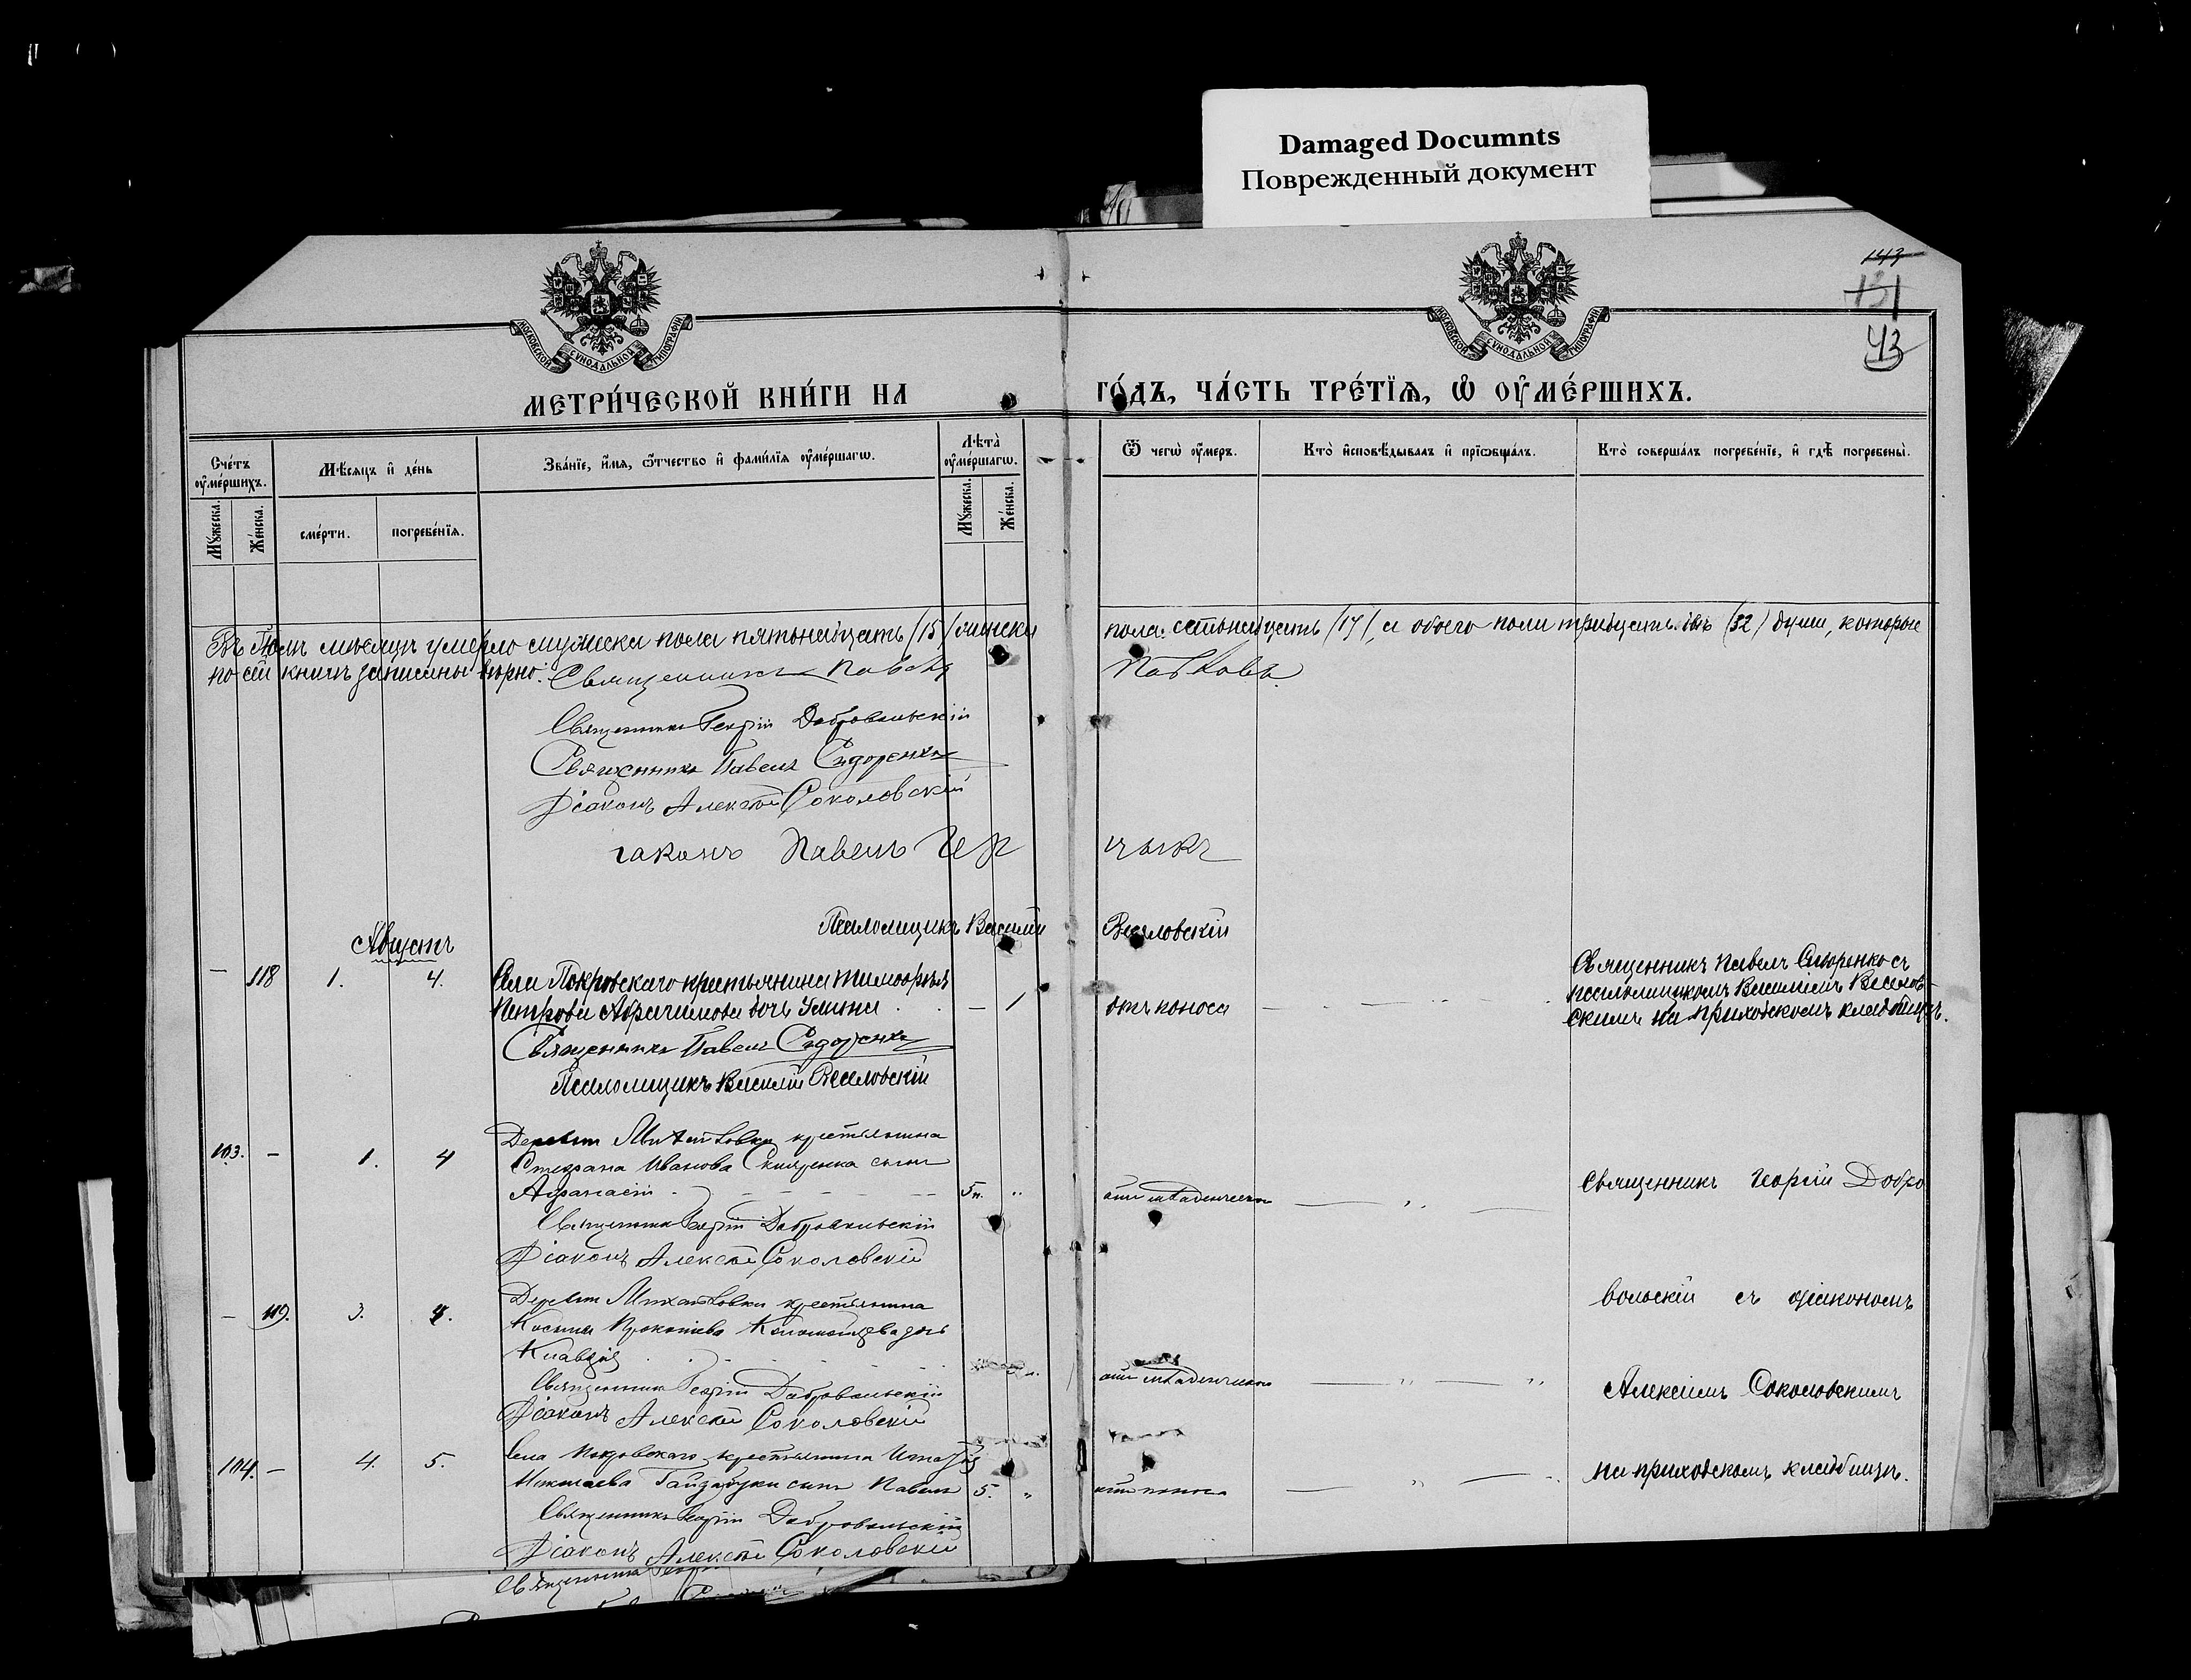 Damaged Documnts
Поврежденный документ
143
131
43
МОСКОВСКОЙ СѴНОДАЛЬНОЙ ТИПОГРАФІИ
МОСКОВСКОЙ СѴНОДАЛЬНОЙ ТИПОГРАФІИ
МЕТРИ́ЧЕСКОЙ КНИ́ГИ НА ГО́ДЪ, ЧА́СТЬ ТРЕ́ТІѦ, Ѡ҆ ОУ҆МЕ́РШИХЪ.
Сче́тъ оу҆ме́ршихъ.
Мꙋжеска.
Же́нска.
Мѣ́сѧцъ и҆ де́нь
сме́рти.
погребе́нїѧ.
Зва́нїе, и҆́мѧ, ѻ҆́тчество и҆ фами́лїѧ оу҆ме́ршагѡ.
Лѣ́та оу҆ме́ршагѡ.
Мꙋжеска.
Же́нска.
Ѿ чегѡ̀ оу҆́меръ.
Кто̀ и҆сповѣ́дывалъ и҆ прїѡбща́лъ.
Кто̀ соверша́лъ погребе́нїе, и҆ гдѣ̀ погребены̀.
Въ Іюлѣ мѣсяцѣ умерло мужеска пола пятьнадцать (15) женска пола семьнадцать (17), а обоего пола тридцать двѣ (32) души, которые
по сей книгѣ записаны вѣрно: Священникъ Павелъ Павловъ.
Священникъ Георгій Добровольскій
Священникъ Павелъ Сидоренко
Діаконъ Алексѣй Соколовскій
іаконъ Павелъ
Псаломщикъ Василій Веселовскій
Августъ
— 118 1. 4. Села Покровскаго крестьянина Тимоѳея
Петрова Абрамова дочь Улита — 1 отъ поноса
Священникъ Павелъ Сидоренко съ
псаломщикомъ Василіемъ Веселов-
скимъ на приходскомъ кладбищѣ.
Священникъ Павелъ Сидоренко
Псаломщикъ Василій Веселовскій
103. — 1. 4 Деревни Михайловки крестьянина
Стефана Иванова сынъ
Аѳанасій 5 м. „ отъ младенческой
Священникъ Георгій Добро
Священникъ Георгій Добровольскій
Діаконъ Алексѣй Соколовскій
— 119. 3. 4. Деревни Михайловки крестьянина
Косьмы Прокопіева Коломойцева дочь
Клавдія отъ младенческой
вольскій съ діакономъ
Священникъ Георгій Добровольскій
Діаконъ Алексѣй Соколовскій
Алексѣемъ Соколовскимъ
104. — 4. 5. Села Покровскаго крестьянина Игнатія
Николаева Гайдабуки сынъ Павелъ 5. „ отъ поноса
на приходскомъ кладбищѣ.
Священникъ Георгій Добровольскій
Діаконъ Алексѣй Соколовскій
Священникъ